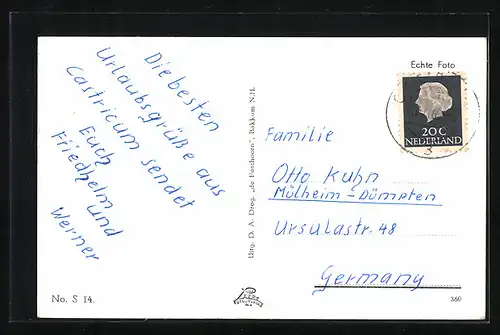 Die besten
Urlaubsgrüße aus
Castricum sendet
Euch
Friedhelm und
Werner
No. S 14.
Uitg. D. A. Dreg. „de Posthoorn", Bakkum N.H.
Echte Foto
20 C
NEDERLAND
3
Familie
Otto Kuhn
Mülheim - Dümpten
Ursulastr. 48
Germany
360